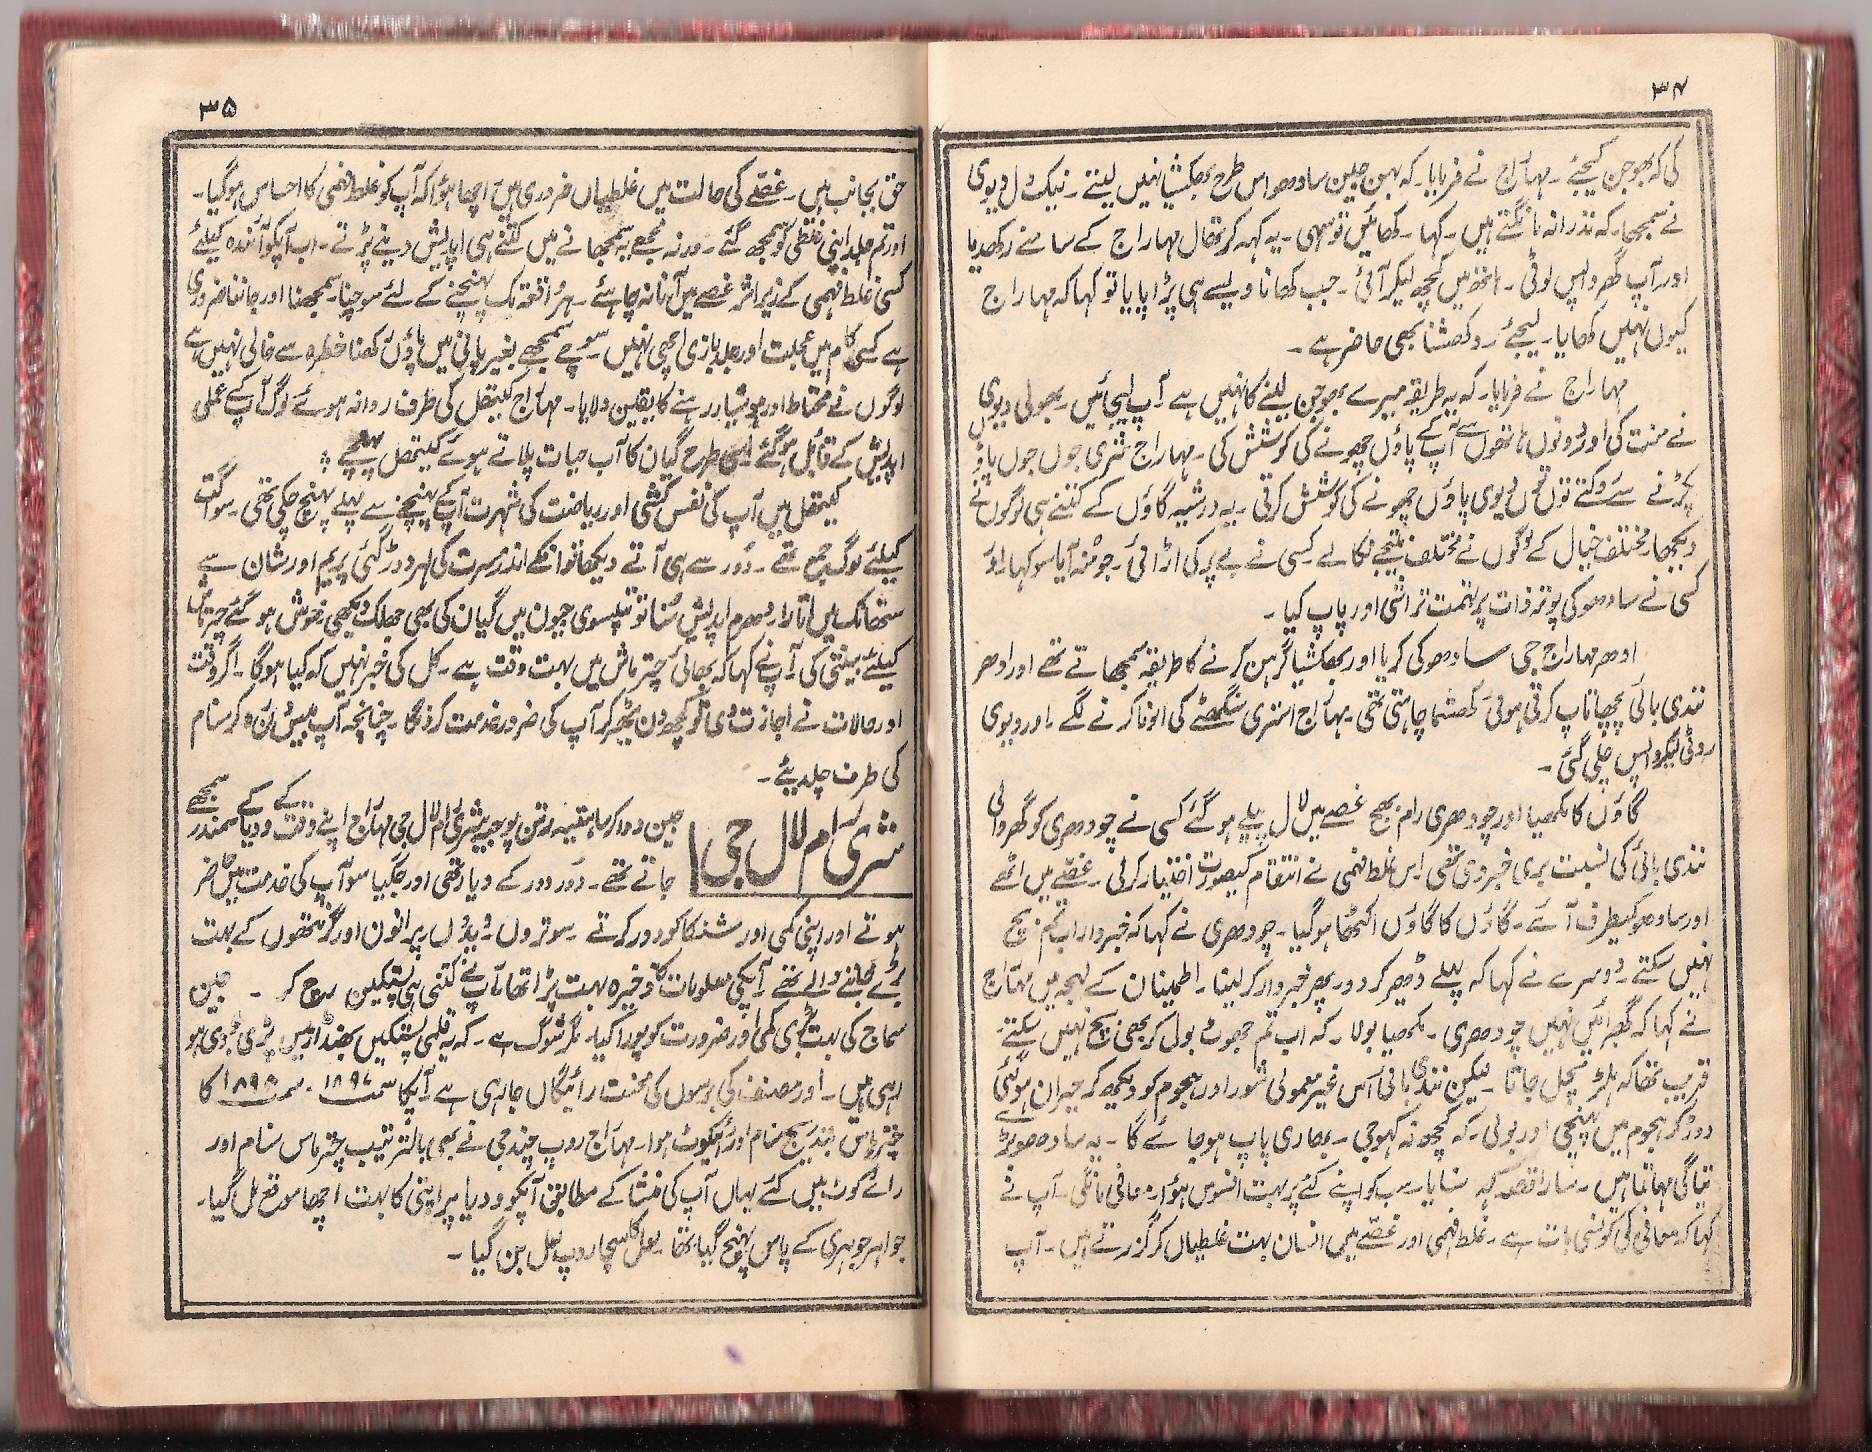 ۳۴
کی کہ بھوجن کیجئے ۔ مہاراج نے فرمایا ۔ کہ بہن جین سادھو اس طرح بھکشیا نہیں لیتے ۔ نیک دل دیوی
نے سمجھا ۔ کہ نذرانہ مانگتے ہیں ۔ کہا ۔ کھائیں تو سہی ۔ یہ کہہ کر تھال مہاراج کے سامنے رکھدیا
اور آپ گھر واپس لوٹی ۔ ہاتھ میں کچھ لیکر آئی ۔ جب کھانا ویسے ہی پڑا پایا تو کہا کہ مہاراج
کیوں نہیں کھایا ۔ لیجئے ۔ دکھشنا بھی حاضر ہے ۔
مہاراج نے فرمایا ۔ کہ یہ طریقہ میرے بھوجن لینے کا نہیں ہے آپ لیجائیں ۔ بھولی دیوی
نے منت کی اور دونوں ہاتھوں سے آپ کے پاؤں چھونے کی کوشش کی ۔ مہاراج شری جوں جوں پاؤں
پکڑنے سے روکتے توں توں دیوی پاؤں چھونے کی کوشش کرتی ۔ یہ درشیہ گاؤں کے کتنے ہی لوگوں نے
دیکھا ۔ مختلف خیال کے لوگوں نے مختلف نتیجے نکالے کسی نے بے پر کی اڑائی ۔ جو منہ آیا سو کہا اور
کسی نے سادھو کی پوتر ذات پر تہمت تراشی اور پاپ کیا ۔
ادھر مہاراج جی سادھو کی کریا اور بھکشیا گرہن کرنے کا طریقہ سمجھاتے تھے اور ادھر
نندی بائی پچھتاپ کرتی ہوئی کھشما چاہتی تھی ۔ مہاراج استری سنگھٹے کی الوٹا کرنے لگے ۔ اور دیوی
روٹی لیکر واپس چلی گئی ۔
گاؤں کا مکھیا اور چودھری رام بھج غصے میں لال پیلے ہو گئے کسی نے چودھری کو گھر والی
نندی بائی کی نسبت بری خبر دی تھی اس غلط فہمی نے انتقام کیصورت اختیار کر لی ۔ غصے میں اٹھے
اور سادھو کیطرف آئے ۔ گاؤں کا گاؤں اکٹھا ہو گیا ۔ چودھری نے کہا کہ خبردار اب تم بچ
نہیں سکتے ۔ دوسرے نے کہا کہ پہلے ڈھیر کر دو پھر خبردار کر لینا ۔ اطمینان کے لہجہ میں مہاراج
نے کہا کہ گھبرائیں نہیں چودھری ۔ مکھیا بولا ۔ کہ اب تم جھوٹ بول کر بھی بچ نہیں سکتے
قریب تھا کہ ہلڑ مچل جاتا ۔ لیکن نندی بائی اس غیر معمولی شور اور ہجوم کو دیکھ کر حیران ہو گئی
دوڑ کر ہجوم میں پہنچی اور بولی ۔ کہ کچھ نہ کہو جی ۔ بھاری پاپ ہو جائے گا ۔ یہ سادھو بڑے
تیاگی مہاتما ہیں ۔ سارا قصہ کہہ سنایا ۔ سب کو اپنے کئے پر بہت افسوس ہوا ۔ معافی مانگی ۔ آپ نے
کہا کہ معافی کی کونسی بات ہے ۔ غلط فہمی اور غصے میں انسان بہت غلطیاں کر گزرتے ہیں ۔ آپ
۳۵
حق بجانب ہیں ۔ غصے کی حالت میں غلطیاں ضروری ہیں اچھا ہوا کہ آپ کو غلط فہمی کا احساس ہو گیا ۔
اور تم جلد اپنی غلطی کو سمجھ گئے ۔ ورنہ مجمع یہ سمجھانے میں کتنے ہی اپدیش دینے پڑتے ۔ اب آپکو آئندہ کیلئے
کسی غلط فہمی کے زیر اثر غصے میں آنا نہ چاہئے ۔ ہر واقعہ تک پہنچنے کے لئے سوچنا ۔ سمجھنا اور جاننا ضروری
ہے کسی کام میں عجلت اور جلد بازی اچھی نہیں ۔ سوچے سمجھے بغیر پانی میں پاؤں رکھنا خطرہ سے خالی نہیں ہے
لوگوں نے محتاط اور ہوشیار رہنے کا یقین دلایا ۔ مہاراج کیتھل کی طرف روانہ ہوئے لوگ آپ کے عملی
اپدیش کے قائل ہو گئے اسی طرح گیان کا آب حیات پلاتے ہوئے کیتھل پہنچے ؞
کیتھل میں آپ کی نفس کشی اور ریاضت کی شہرت آپ کے پہنچنے سے پہلے پہنچ چکی تھی ۔ سواگت
کیلئے لوگ جمع تھے ۔ دور سے ہی آتے دیکھا تو انکے اندر مسرت کی لہر دوڑ گئی پریم اور شان سے
ستھانک میں اتارا ۔ دھرم اپدیش سنا تو تپسوی جیون میں گیان کی بھی جھلک دیکھی خوش ہو گئے چترماس
کیلئے بینتی کی آپ نے کہا کہ بھائی چترماس میں بہت وقت ہے ۔ کل کی خبر نہیں کہ کیا ہوگا ۔ اگر وقت
اور حالات نے اجازت دی تو کچھ دن ٹھہر کر آپ کی ضرور خدمت کرونگا ۔ چنانچہ آپ بیس دن رہ کر سنام
کی طرف چلدیئے ۔
شری رام لال جی
جین دواکر ساہتیہ رتن پوجیہ شری رام لال جی مہاراج اپنے وقت کے ودیا کے سمندر سمجھے
جاتے تھے ۔ دور دور کے ودیارتھی اور جگیاسو آپ کی خدمت میں حاضر
ہوتے اور اپنی کمی اور شنکا کو دور کرتے ۔ سوتروں ویدوں پرانوں اور گرنتھوں کے بہت
بڑے جاننے والے تھے آپکی معلومات کا ذخیرہ بہت بڑا تھا آپ نے کتنی ہی پستکیں رچ کر ۔ جین
سماج کی بہت بڑی کمی اور ضرورت کو پورا کیا ۔ مگر شوک ہے ۔ کہ یہ قلمی پستکیں بھنڈار میں پڑی ردی ہو
رہی ہیں ۔ اور مصنف کی برسوں کی محنت رائیگاں جا رہی ہے آپکا سمت ۱۸۹۷ ۔ سمت ۱۸۹۸ کا
چترماس بتدریج سنام اور رائیکوٹ ہوا ۔ مہاراج روپ چند جی نے بھی بالترتیب چترماس سنام اور
رائے کوٹ میں کئے یہاں آپ کی منشا کے مطابق آپکو ودیا پراپتی کا بہت اچھا موقع مل گیا ۔
جواہر جوہری کے پاس پہنچ گیا تھا ۔ لعل کا سچا روپ لعل بن گیا ۔